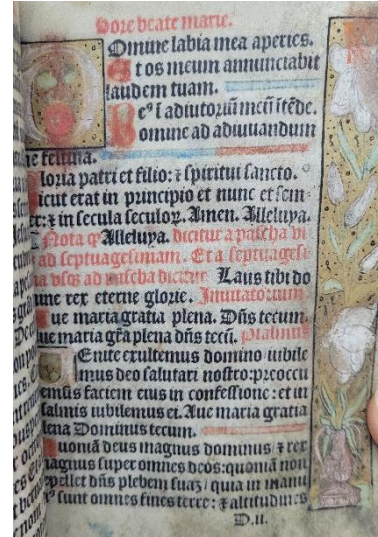 Hore beate marie.
Domine labia mea aperies.
Et os meum annunciabit
laudem tuam.
Deꝰ ī adiutoriū meū ītēde.
Domine ad adiuuandum
me festina.
Gloria patri et filio: ⁊ spiritui sancto.
Sicut erat in principio et nunc et sem-
per: ⁊ in secula seculoꝝ. Amen. Alleluya.
Nota ꝙ Alleluya. dicitur a pascha vs
ad septuagesimam. Et a septuagesi
ma vsꝫ ad pascha dicitur Laus tibi do
mine rex eterne glorie. Inuitatorium
Aue maria gratia plena. Dn̄s tecum.
Aue maria gr̄a plena dn̄s tecū. Psalmus
Uenite exultemus domino iubile
mus deo salutari nostro: preoccu
pemus faciem eius in confessione: et in
psalmis iubilemus ei. Aue maria gratia
plena Dominus tecum.
Quoniā deus magnus dominus ⁊ rex
magnus super omnes deos: quoniā non
repellet dn̄s plebem suaꝫ / quia in manu
eiꝰ sunt omnes fines terre: ⁊ altitudines
D.ii.